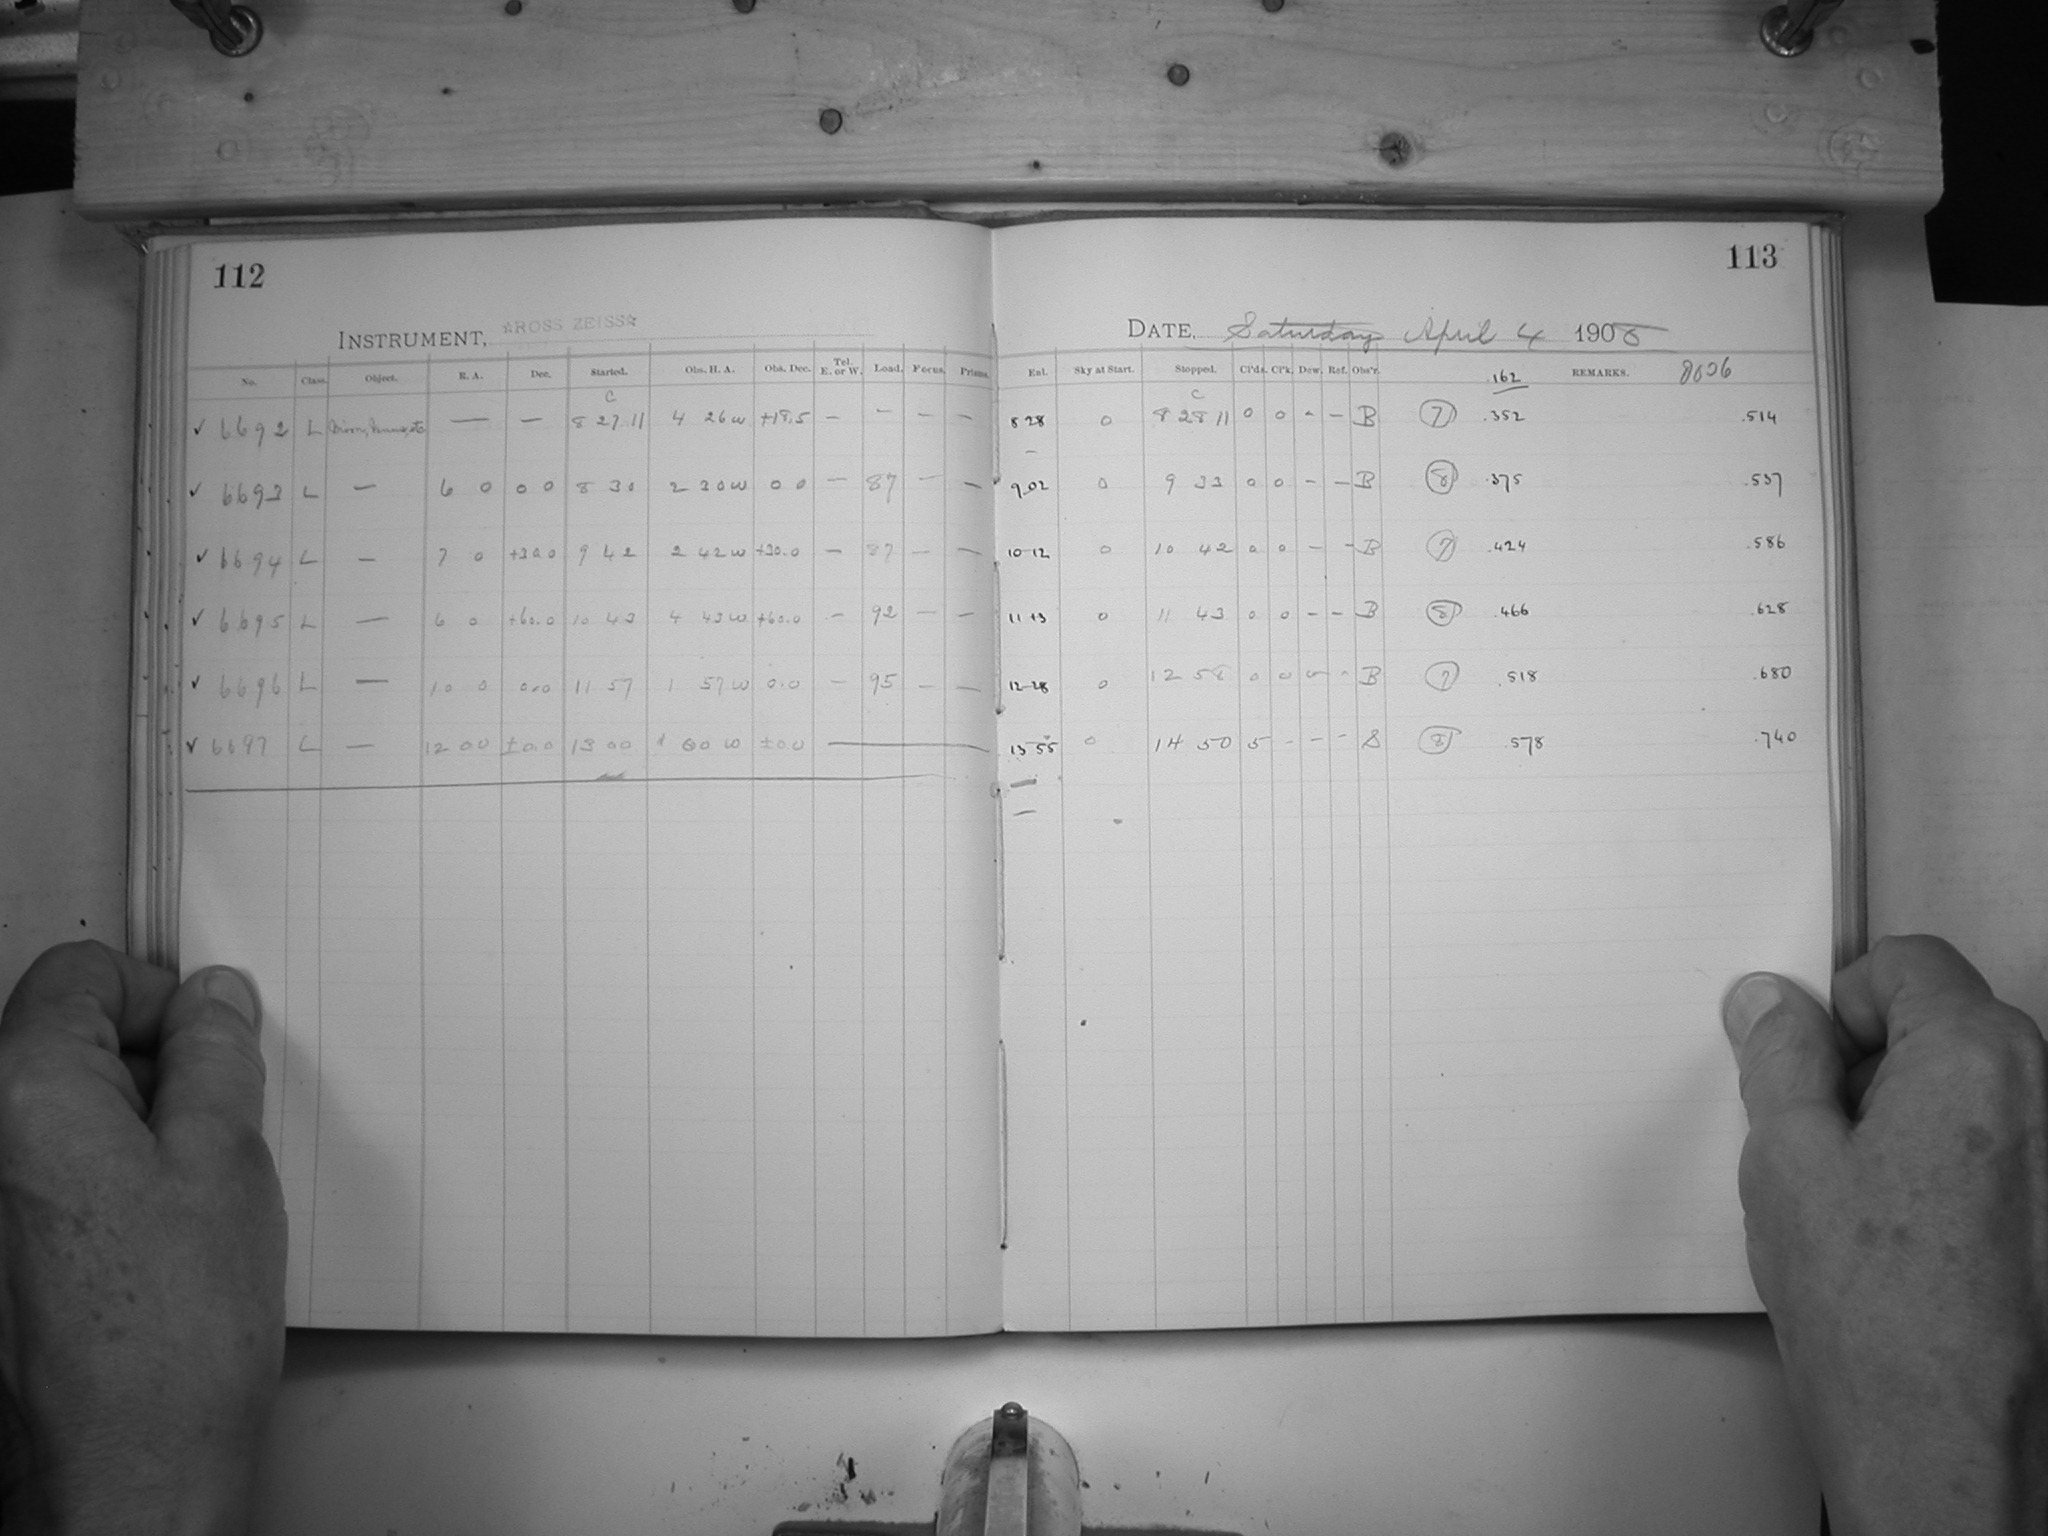 112
113
INSTRUMENT, ☆ROSS ZEISS☆
DATE, Saturday April 4 1908
No. Class. Object. R. A. Dec. Started. Obs. H. A. Obs. Dec. Tel. E. or W. Load. Focus. Prisms. Ent. Sky at Start. Stopped. Cl'ds. Cl'k. Dew. Ref. Obs'r. .162 REMARKS. 8036
C C
✓ 6692 L Moon, Venus, etc — — 8 27 11 4 26 W +18.5 – – – – 8 28 0 8 28 11 0 0 - – B 7 .352 .514
✓ 6693 L — 6 0 0 0 8 30 2 30 W 0 0 – 87 – – 9 02 0 9 33 0 0 – – B 8 .375 .537
✓ 6694 L — 7 0 +30.0 9 42 2 42 W +30.0 – 87 – – 10 12 0 10 42 0 0 – - B 7 .424 .586
✓ 6695 L — 6 0 +60.0 10 43 4 43 W +60.0 – 92 – – 11 13 0 11 43 0 0 – – B 8 .466 .628
✓ 6696 L — 10 0 0.0 11 57 1 57 W 0.0 – 95 – – 12 28 0 12 58 0 0 0 - B 7 .518 .680
✓ 6697 L — 12 00 ±0.0 13 00 1 00 W ±0.0 — 13 55 0 14 50 5 - - - S 8 .578 .740